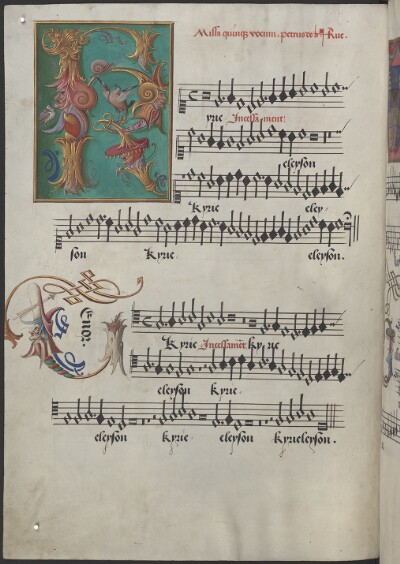 Missa quinque vocum. petrus de la Rue.
kyrie Incessament:
eleyson
Kyrie eley-
son Kyrie. eleyson.
Tenor.
Kyrie Incessament kyrie
eleyson kyrie.
eleyson kyrie. eleyson kyrieleyson.